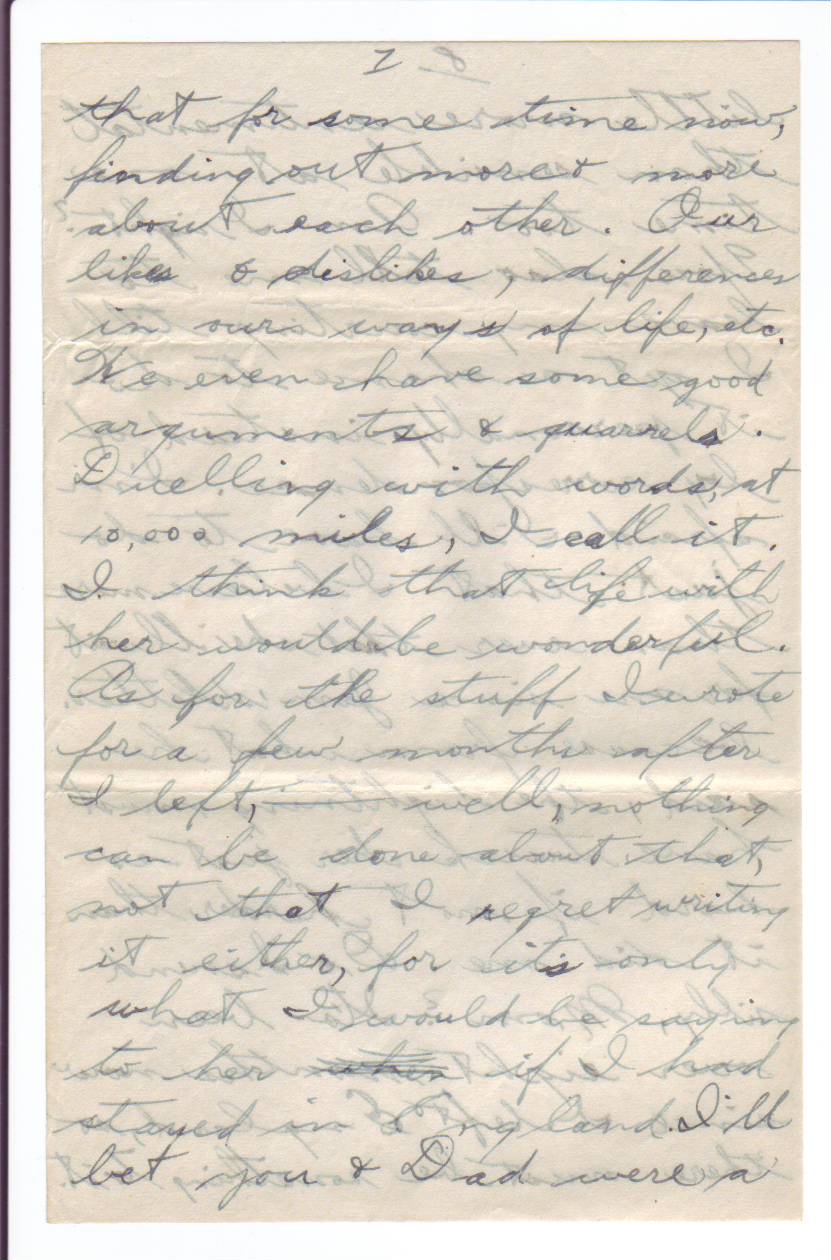 7
that for some time now,
finding out more & more
about each other. Our
likes & dislikes, differences
in ours ways of life, etc.
We even have some good
arguments & quarrels.
Duelling with words, at
10,000 miles, I call it.
I think that life with
her would be wonderful.
As for the stuff I wrote
for a few months after
I left, — well, nothing
can be done about that,
not that I regret writing
it either, for it's only
what I would be saying
to her when if I had
stayed in England. I'll
bet you & Dad were a